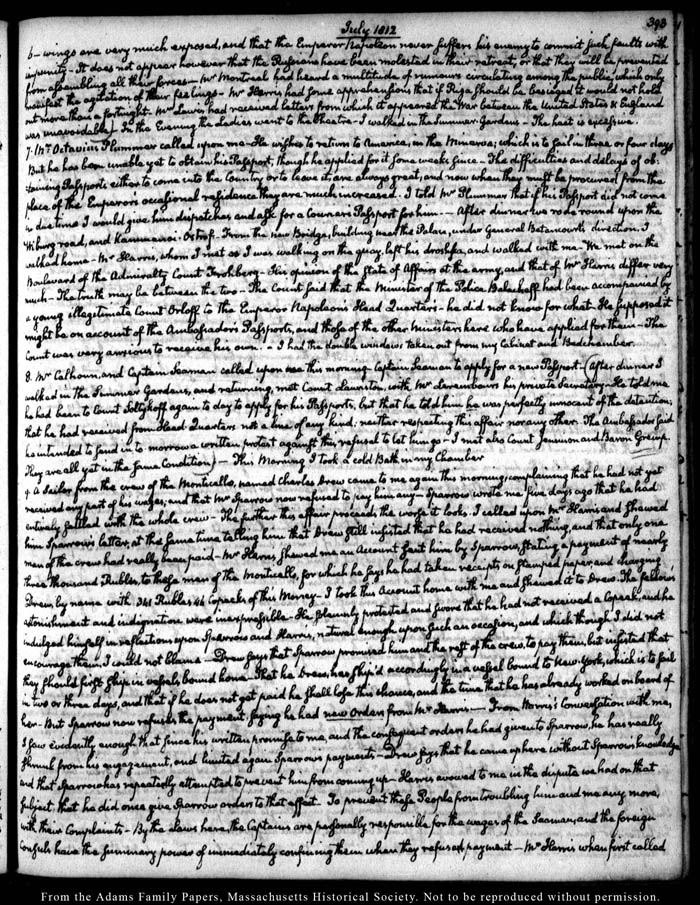 July 1812
393
6 - wings are very much exposed, and that the Emperor Napoleon never suffers his enemy to commit such faults with
impunity - It does not appear however that the Russians have been molested in their retreat, or that they will be prevented
from assembling all their forces - Mr Montreal had heard a multitude of rumours circulating among the public, which only
manifest the agitation of their feelings - Mr Harris had some apprehensions that if Riga should be besieged it would not hold
out more than a fortnight - Mr Lewis had received letters from which it appeared the War between the United States & England
was unavoidable. In the Evening the Ladies went to the Theatre - I walked in the Summer Gardens - The heat is excessive.
7. Mr Octavius Plummer called upon me - He wishes to return to America, in the Minerva; which is to sail in three or four days
But he has been unable yet to obtain his Passport, though he applied for it some weeks since - The difficulties and delays of ob:
:taining Passports either to come into the Country or to leave it are always great; and now when they must be procured from the
place of the Emperor's occasional residence they are much increased. I told Mr Plummer that if his Passport did not come
in due time I would give him dispatches and ask for a Courier's Passport for him - After dinner we rode round upon the
Wiburg road, and Kammenoi-Ostrof. From the new Bridge, building near the Palace, under General Betancourt's direction, I
walked home - Mr Harris, whom I met as I was walking on the quay, left his droshka, and walked with me - We met on the
Boulevard of the Admiralty Count Frohberg - His opinion of the State of Affairs at the army, and that of Mr Harris differ very
much - The truth may be between the two - The Count said that the Minister of the Police Balashoff had been accompanied by
a young illegitimate Count Orloff to the Emperor Napoleon's Head Quarters - he did not know for what - He supposed it
might be on account of the Ambassador's Passports, and those of the other Ministers here who have applied for theirs - The
Count was very anxious to receive his own. - I had the double windows taken out from my Cabinet and Bedchamber.
8. Mr Calhoun, and Captain Seaman called upon me this morning - Captain Seaman to apply for a new Passport - (After dinner I
walked in the Summer Gardens, and returning, met Count Lauriston, with Mr Lavembours his private Secretary - He told me
he had been to Count Soltykoff again to day to apply for his Passports, but that he told him he was perfectly innocent of the detention;
that he had received from Head Quarters not a line of any kind; neither respecting this affair nor any other. The Ambassador said
he intended to send in to morrow a written protest against this refusal to let him go - I met also Count Jennison and Baron Greimp.
They are all yet in the same Condition) - This Morning I took a cold Bath in my Chamber
9. A Sailor from the crew of the Monticello, named Charles Drew came to me again this morning; complaining that he had not yet
received any part of his wages, and that Mr Sparrow now refused to pay him any - Sparrow wrote me five days ago that he had
entirely settled with the whole crew - The further this affair proceeds, the worse it looks. I called upon Mr Harris and shewed
him Sparrow's letter, at the same time telling him that Drew still insisted that he had received nothing, and that only one
man of the crew had really been paid - Mr Harris, shewed me an Account sent him by Sparrow, stating a payment of nearly
three thousand Rubles, to these men of the Monticello, for which he says he had taken receipts on stamped paper, and charging
Drew, by name with 341 Rubles 44 Copecks of this Money - I took this Account home with me and shewed it to Drew. The fellow's
astonishment and indignation were inexpressible - He solemnly protested and swore that he had not received a Copeck, and he
indulged himself in reflections upon Sparrow and Harris, natural enough upon such an occasion, and which though I did not
encourage them, I could not blame - Drew says that Sparrow promised him and the rest of the crew, to pay them, but insisted that
they should first ship in vessels, bound home - That he Drew, has ship'd accordingly in a vessel bound to New-York, which is to sail
in two or three days, and that if he does not get paid he shall lose this chance, and the time that he has already worked on board of
her - But Sparrow now refuses the payment, saying he had new Orders from Mr Harris - From Harris's Conversation with me,
I saw evidently enough that since his written promise to me, and the consequent orders he had given to Sparrow, he has really
shrunk from his engagement, and limited again Sparrow's payments - Drew says that he came up here without Sparrow's knowledge
and that Sparrow has repeatedly attempted to prevent him from coming up - Harris avowed to me in the dispute we had on that
subject that he did once give Sparrow orders to that effect. To prevent these People from troubling him and me any more,
with their Complaints - By the Laws here, the Captains are personally responsible for the wages of the Seaman, and the foreign
Consuls have the summary power of immediately confining them when they refused payment - Mr Harris when first called
From the Adams Family Papers, Massachusetts Historical Society. Not to be reproduced without permission.